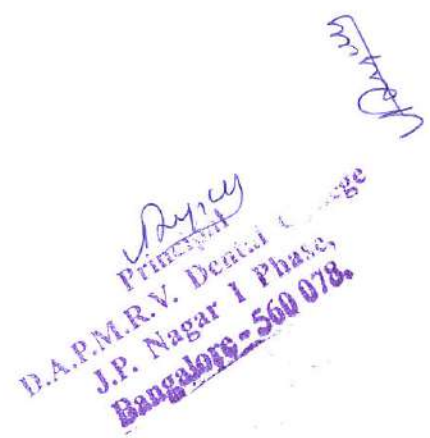 Principal
D.A.P.M.R.V. Dental C  ege
J.P. Nagar I Phase,
Bangalore - 560 078.